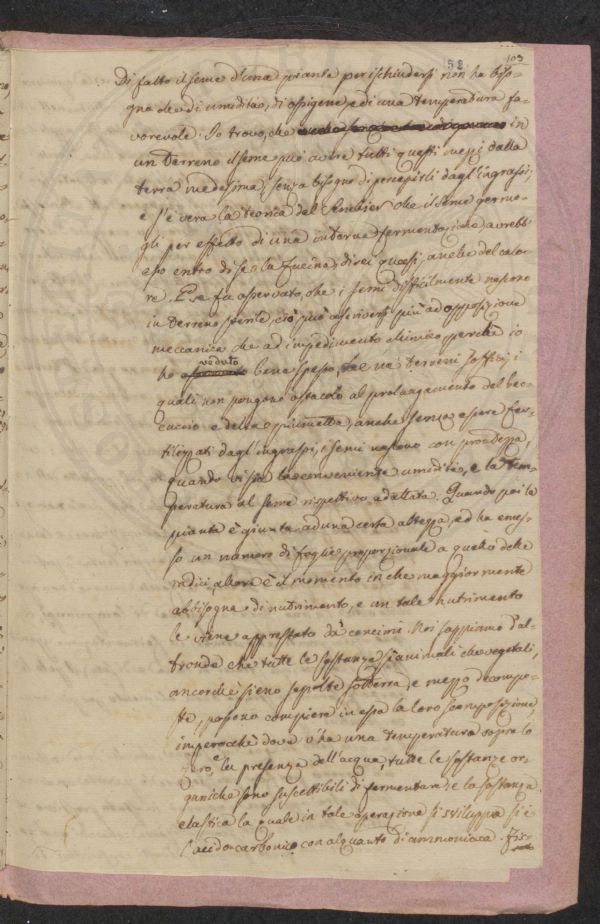 58 103
Di fatto il seme d'una pianta per ischiudersi non ha biso-
gno che di umidità, di ossigene, e di una temperatura fa-
vorevole. Io trovo, che in
un Terreno il seme può avere tutti questi mezzi dalla
terra medesima, senza bisogno di percepirli dagl'ingrassi;
e s'è vera la teoria del che il seme germo-
gli per effetto di una interna fermentazione, avrebb'
esso entro di se la fucina, direi quasi, anche del calo-
re. E se fu osservato, che i semi difficilmente nascono
in Terreno sterile, ciò può ascriversi più ad opposizione
meccanica che ad impedimento chimico, perchè io
ho veduto bene spesso, che ne' terreni soffici, i
quali non pongono ostacolo al prolungamento del bec-
cuccio e della piumetta, anche senza essere fer-
tilizzati dagl'ingrassi, i semi nascono con prontezza,
quando vi sia la conveniente umidità, e la tem-
peratura al seme rispettivo adattata. Quando poi la
pianta è giunta ad una certa altezza, ed ha emes-
so un numero di foglie proporzionale a quello delle
radici, allora è il momento in che maggiormente
abbisogna di nutrimento, e un tale nutrimento
le viene apprestato da' concimi. Noi sappiamo d'al-
tronde che tutte le sostanze sì animali che vegetali,
ancorchè sieno sepolte sotterra, e mezzo decompo-
ste, possono compiere in essa la loro scomposizione,
imperocchè dove v'ha una temperatura sopra lo
zero, e la presenza dell'acqua, tutte le sostanze or-
ganiche sono suscettibili di fermentare, e la sostanza
elastica la quale in tale operazione si sviluppa si è
l'acido carbonico con alquanto di ammoniaca.